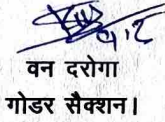 वन दरोगा
गोडर सैक्शन।